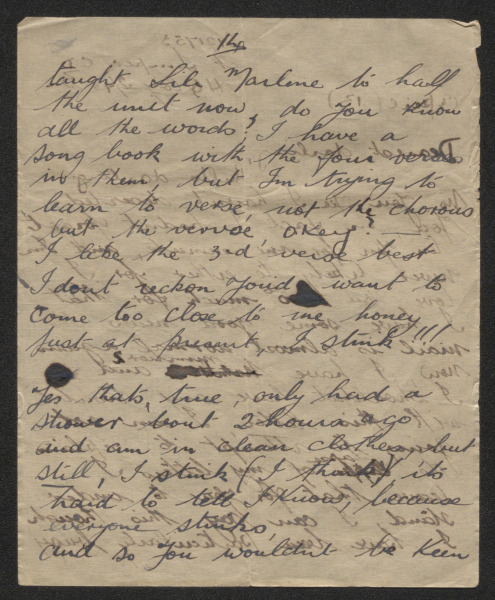 taught Lili Marlene to half
the unit now, do you know
all the words? I have a
song book with the four verses
in them, but I'm trying to
learn to verse, not the chorous
but the vervse, okey? —
I like the 3rd verse best
I dont reckon youd want to
come too close to me honey
just at present, I stink!!!
Yes thats, true, only had a
shower bout 2 hours ago
and am in clean clothes but
still, I stink (I think) its
hard to tell I know, because
everyone stinks,
and so you wouldn't be keen